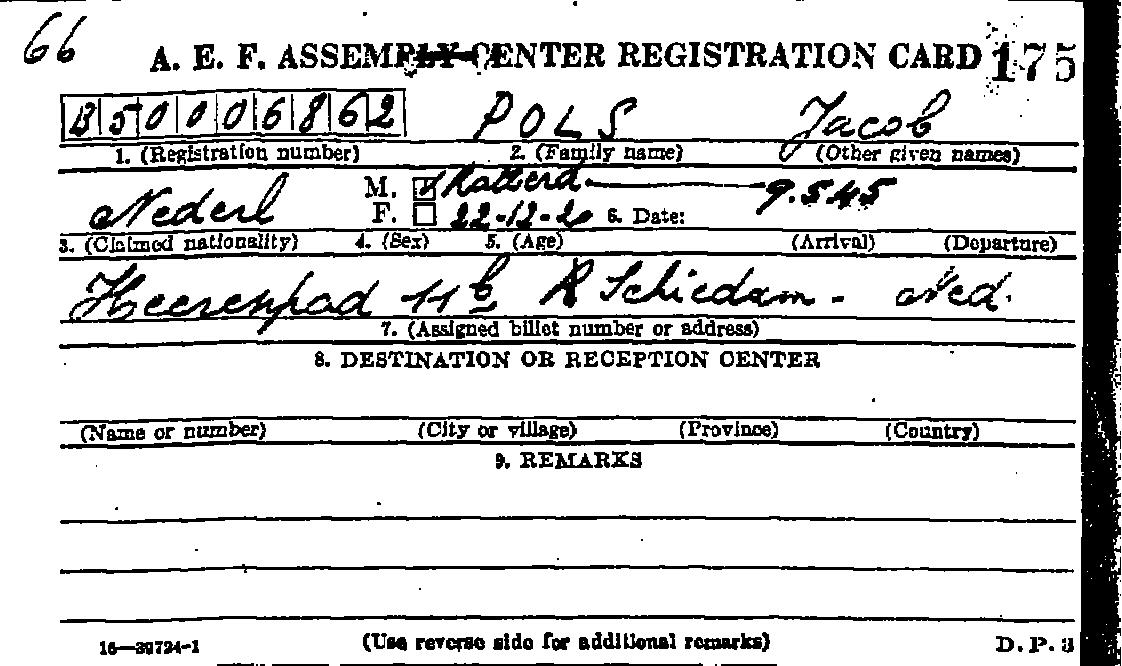 66
A. E. F. ASSEMBLY CENTER REGISTRATION CARD 175
B50006862 POLS Jacob
1. (Registration number) 2. (Family name) (Other given names)
Nederl M. Rotterd. 9.5.45
F. 22-12-20 6. Date:
3. (Claimed nationality) 4. (Sex) 5. (Age) (Arrival) (Departure)
Heerenpad 11b R Schiedam - Ned.
7. (Assigned billet number or address)
8. DESTINATION OR RECEPTION CENTER
(Name or number) (City or village) (Province) (Country)
9. REMARKS
16—39724-1 (Use reverse side for additional remarks) D. P. 3